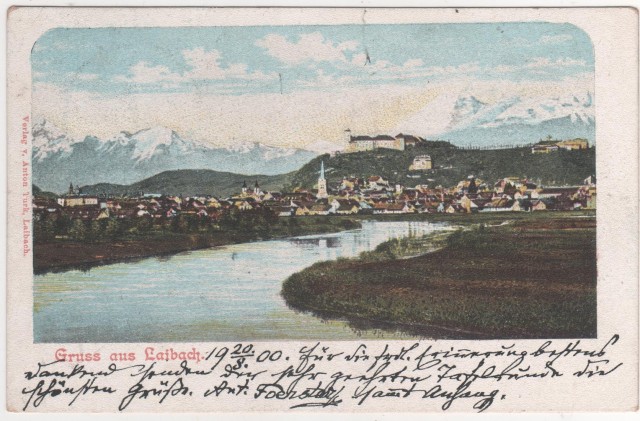 Verlag v. Anton Turk, Laibach.
Gruss aus Laibach. 19 20/8. 00. Für die frdl. Erinnerung bestens
dankend senden der sehr geehrten Tafelrunde die
schönsten Grüße. Ant. samt Anhang.